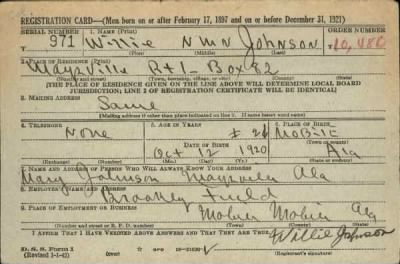 REGISTRATION CARD—(Men born on or after February 17, 1897 and on or before December 31, 1921)
SERIAL NUMBER 1. NAME (Print) ORDER NUMBER
971 Willie NMN Johnson 10,486
(First) (Middle) (Last)
2. PLACE OF RESIDENCE (Print)
Maysville Rt 1 - Box 82
(Number and street) (Town, township, village, or city) (County) (State)
[THE PLACE OF RESIDENCE GIVEN ON THE LINE ABOVE WILL DETERMINE LOCAL BOARD
JURISDICTION; LINE 2 OF REGISTRATION CERTIFICATE WILL BE IDENTICAL]
3. MAILING ADDRESS
Same
[Mailing address if other than place indicated on line 2. If same insert word same]
4. TELEPHONE 5. AGE IN YEARS 6. PLACE OF BIRTH
None 21 Mobile
DATE OF BIRTH (Town or county)
Oct 12 1920 Ala
(Exchange) (Number) (Mo.) (Day) (Yr.) (State or country)
7. NAME AND ADDRESS OF PERSON WHO WILL ALWAYS KNOW YOUR ADDRESS
Mary Johnson Maysville Ala
8. EMPLOYER'S NAME AND ADDRESS
Brookley Field
9. PLACE OF EMPLOYMENT OR BUSINESS
Mobile Mobile Ala
(Number and street or R. F. D. number) (Town) (County) (State)
I AFFIRM THAT I HAVE VERIFIED ABOVE ANSWERS AND THAT THEY ARE TRUE.
Willie Johnson
D. S. S. Form 1
(Revised 1-1-42) (over)